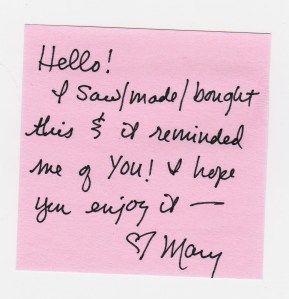 Hello!
I saw/made/bought
this & it reminded
me of YOU! I hope
you enjoy it —
♡ Mary